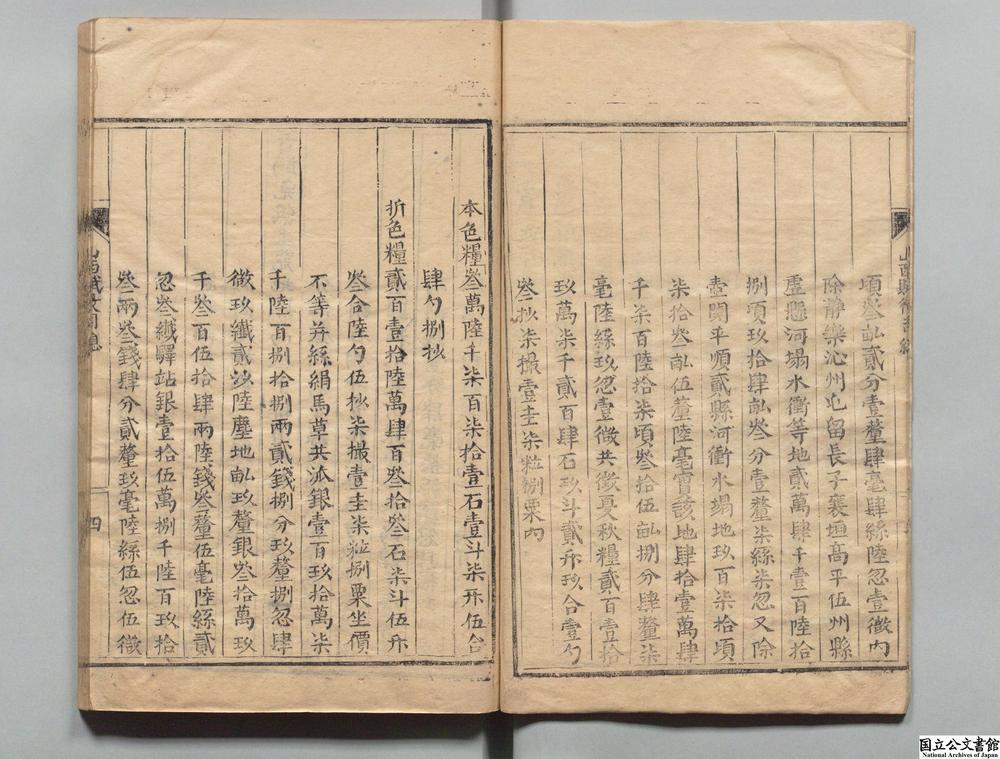 頃叁畝貳分壹釐肆毫肆絲陸忽壹微內
除靜樂沁州屯留長子襄垣高平伍州縣
虛懸河塌水衝等地貳萬肆千壹百陸拾
捌頃玖拾肆畝叁分壹釐柒絲柒忽又除
壺關平順貳縣河衝水塌地玖百柒拾頃
柒拾叁畝伍釐陸毫實該地肆拾壹萬肆
千柒百陸拾柒頃叁拾伍畝捌分肆釐柒
毫陸絲玖忽壹微共徵夏秋糧貳百壹拾
玖萬柒千貳百肆石玖斗貳升玖合壹勺
叁抄柒撮壹圭柒粒捌粟內
本色糧叁萬陸千柒百柒拾壹石壹斗柒升伍合
肆勺捌抄
折色糧貳百壹拾陸萬肆百叁拾叁石柒斗伍升
叁合陸勺伍抄柒撮壹圭柒粒捌粟坐價
不等并絲絹馬草共派銀壹百玖拾萬柒
千陸百捌拾捌兩貳錢捌分玖釐捌忽肆
微玖纖貳沙陸塵地畝玖釐銀叁拾萬玖
千叁百伍拾肆兩陸錢叁釐伍毫陸絲貳
忽叁纖驛站銀壹拾伍萬捌千陸百玖拾
叁兩叁錢肆分貳釐玖毫陸絲伍忽伍微
四
国立公文書館
National Archives of Japan